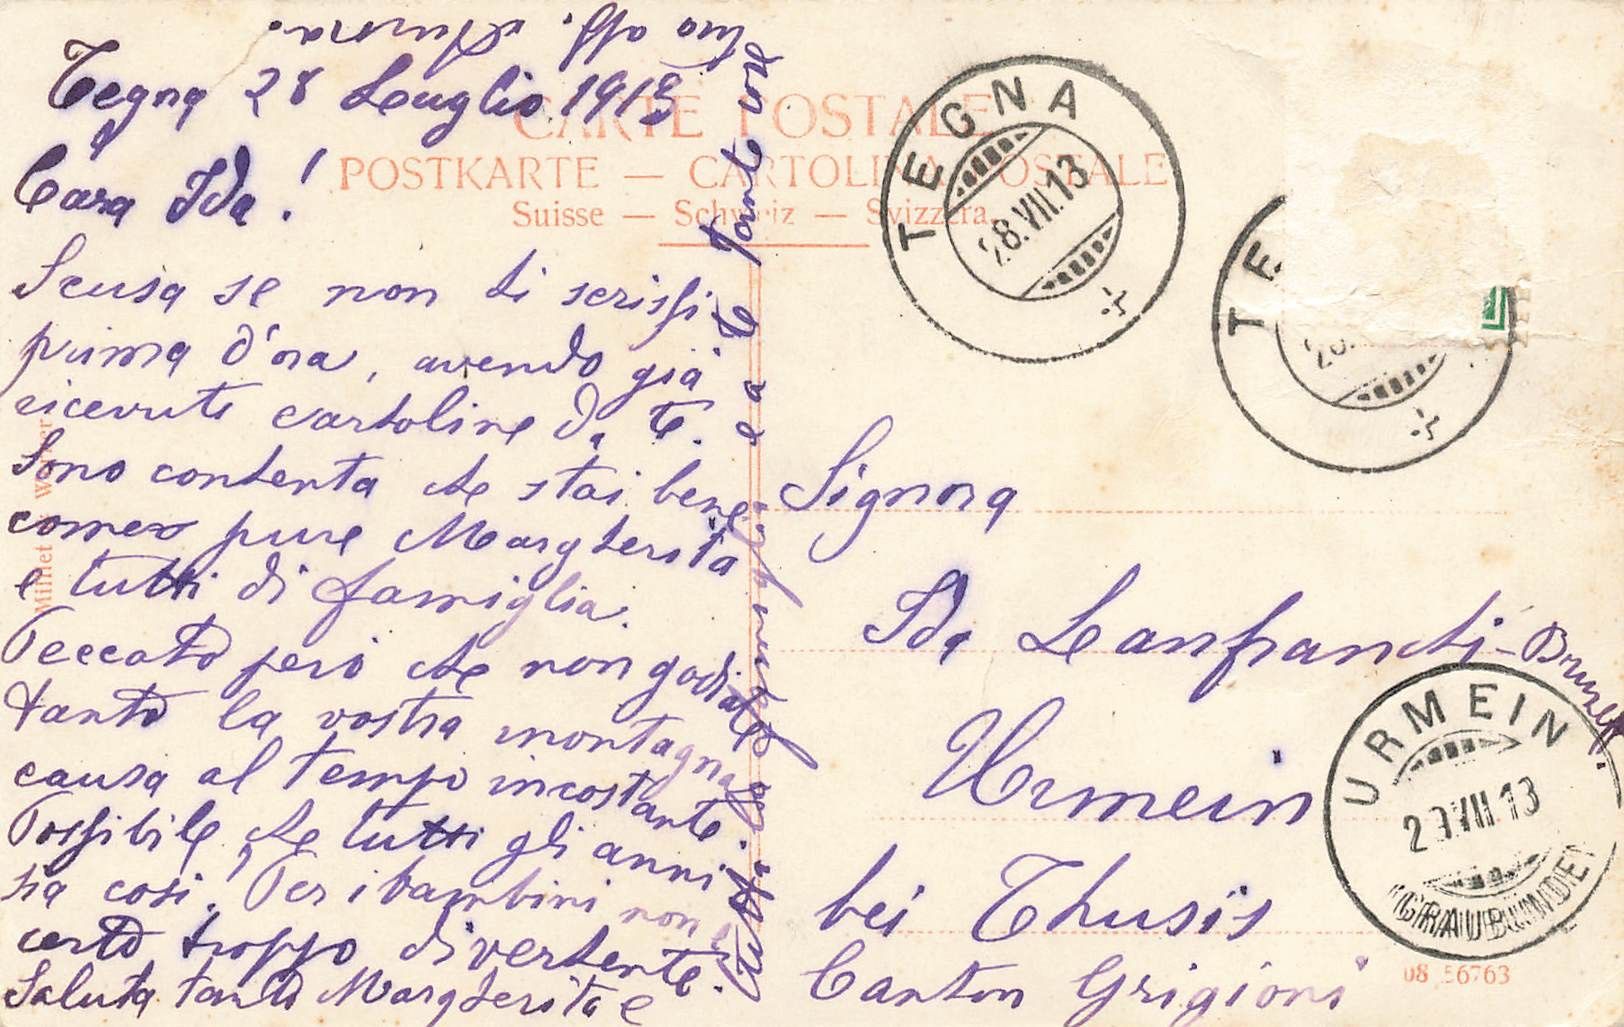 Tegna 28 Luglio 1913
Cara Ida!
Scusa se non ti scrissi
prima d'ora, avendo già
ricevuti cartoline da te.
Sono contenta che stai bene
come pure Margherita
e tutti di famiglia.
Peccato però che non godiate
tanto la vostra montagna
causa al tempo incostante.
Possibile che tutti gli anni
sia così! Per i bambini non è
certo troppo divertente.
Saluta tanto Margherita e
tutta la famiglia e a te tante cose
tua aff.
CARTE POSTALE
POSTKARTE — CARTOLINA POSTALE
Suisse — Schweiz — Svizzera.
TEGNA
28.VII.13
TE
Signora
Ida Lanfranchi-
Urmein
bei Thusis
Canton Grigioni
URMEIN
29.VII.13
(GRAUBÜNDEN)
08 56763